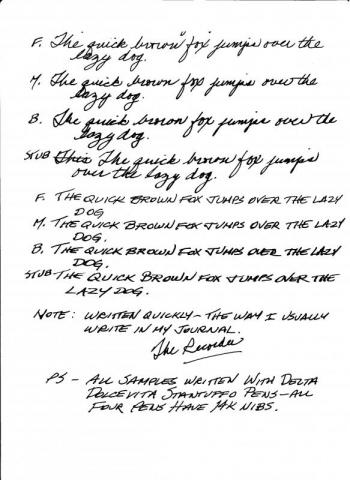 F. The quick brown fox jumps over the
lazy dog.
M. The quick brown fox jumps over the
lazy dog.
B. The quick brown fox jumps over the
lazy dog.
STUB This The quick brown fox jumps
over the lazy dog.
F. THE QUICK BROWN FOX JUMPS OVER THE LAZY
DOG
M. THE QUICK BROWN FOX JUMPS OVER THE LAZY
DOG.
B. THE QUICK BROWN FOX JUMPS OVER THE LAZY
DOG.
STUB-THE QUICK BROWN FOX JUMPS OVER THE
LAZY DOG.
NOTE: WRITTEN QUICKLY - THE WAY I USUALLY
WRITE IN MY JOURNAL.
The Recorder
PS - ALL SAMPLES WRITTEN WITH DELTA
DOLCEVITA STANTUFFO PENS - ALL
FOUR PENS HAVE 14K NIBS.